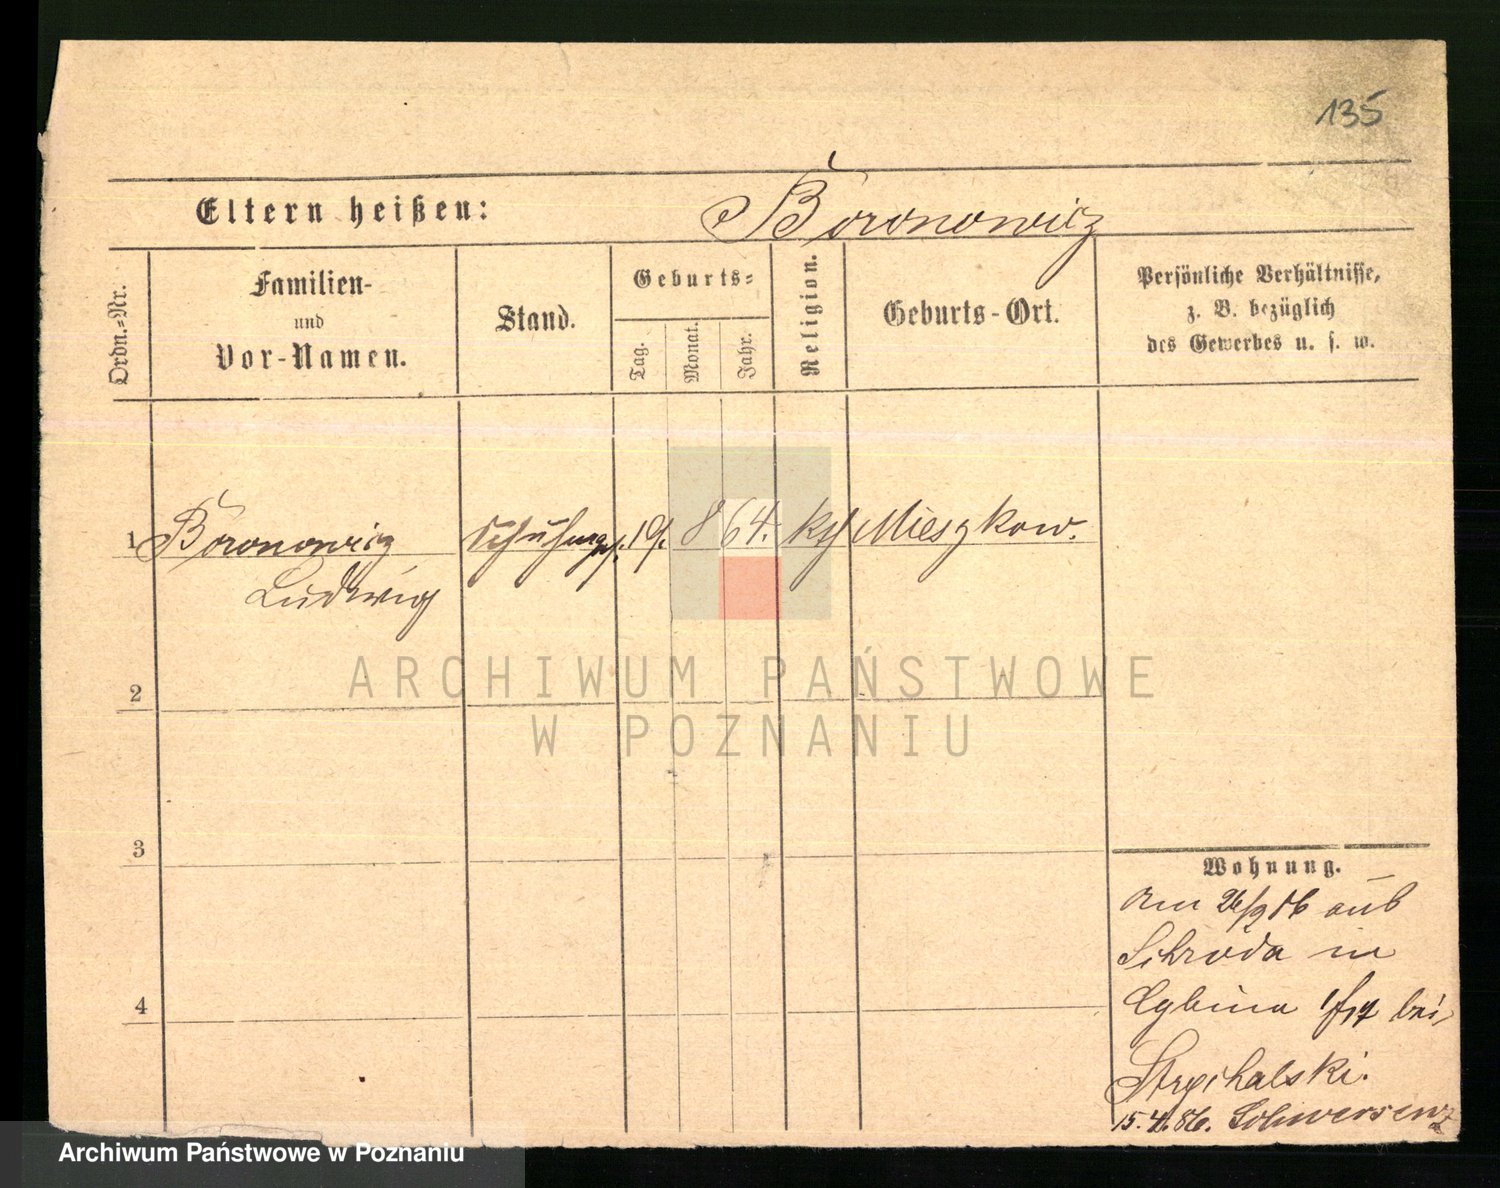 135
Eltern heißen: Boronowicz
Ordn.=Nr.
Familien-
und
Vor-Namen.
Stand.
Geburts=
Tag.
Monat.
Jahr.
Religion.
Geburts-Ort.
Persönliche Verhältnisse,
z. B. bezüglich
des Gewerbes u. s. w.
1 Boronowicz Schuhmg. 19. 8 64. kth Mieszkow.
Ludwig
2
3
4
Wohnung.
Am 26/9 86 aus
Schroda in
Cybina bei
Strychalski.
15. 86. Schwersenz
ARCHIWUM PAŃSTWOWE
W POZNANIU
Archiwum Państwowe w Poznaniu